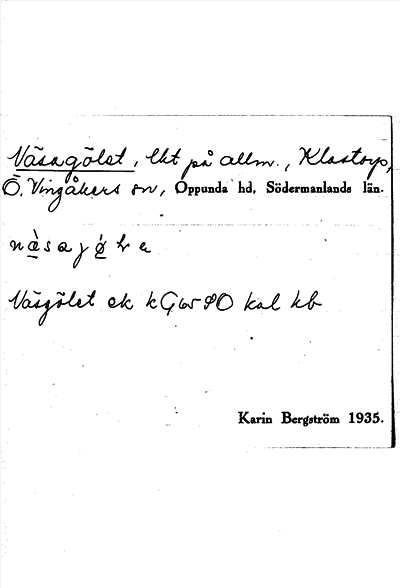 Näsagölet, lkt på allm., Klastorp,
Ö. Vingåkers sn, Oppunda hd, Södermanlands län.
näsagöle
Näsgölet ek kGwSPO kal kb
Karin Bergström 1935.